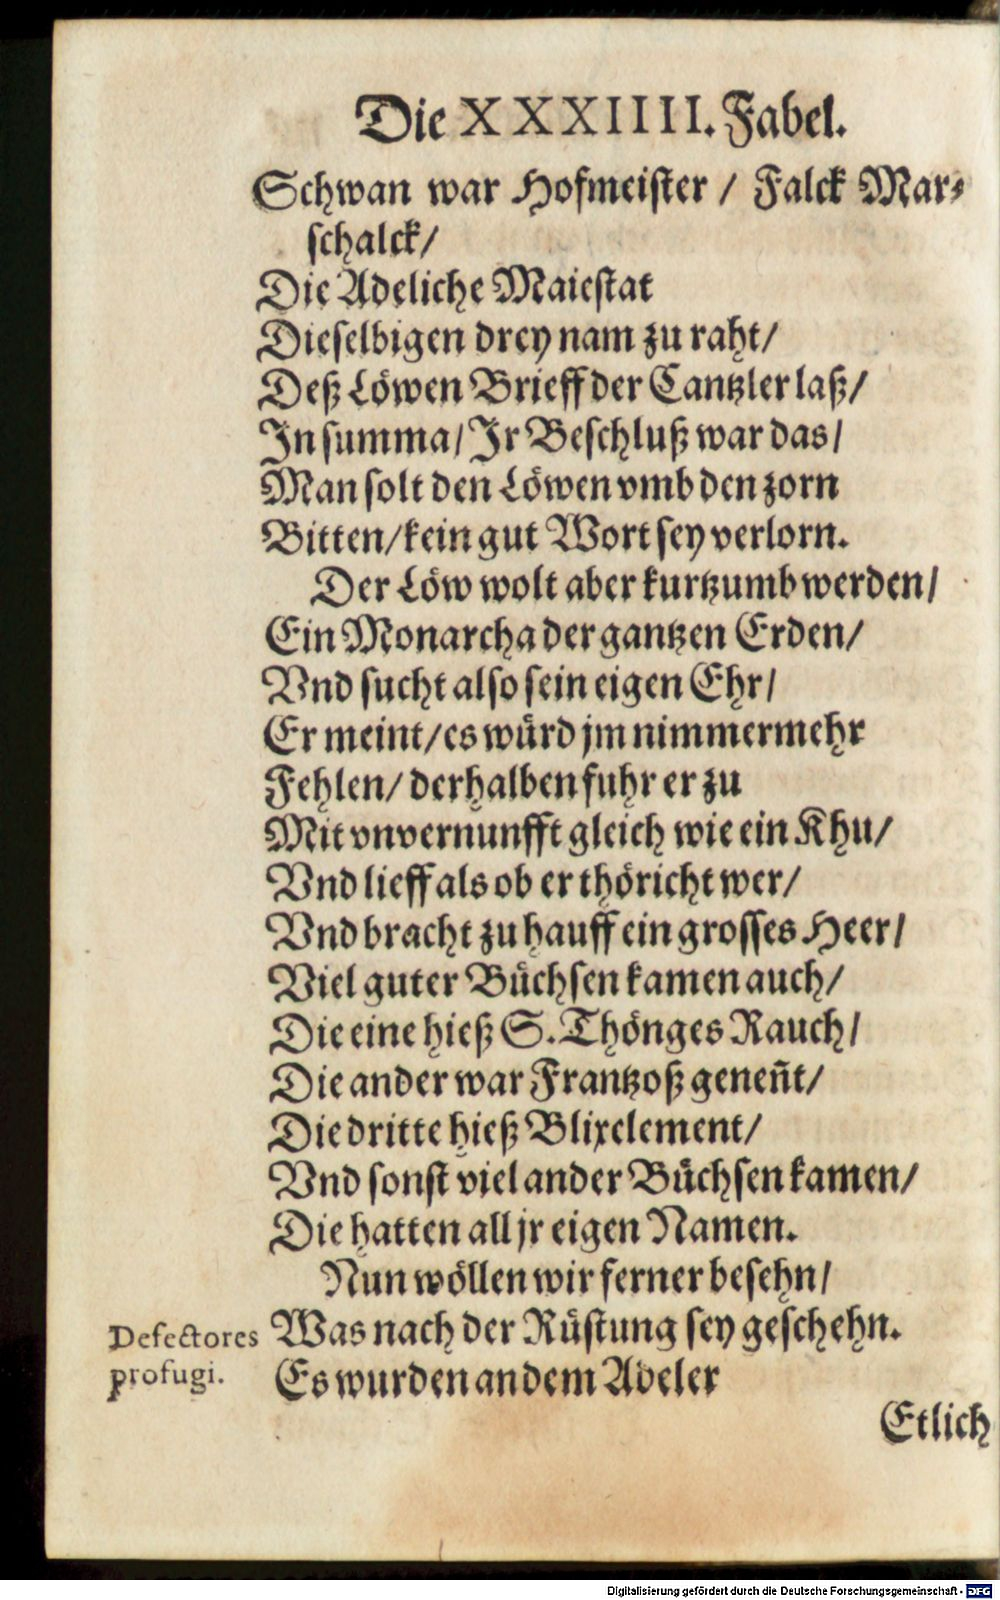 Die XXXIIII. Fabel.
Schwan war Hofmeister / Falck Mar⸗
schalck/
Die Adeliche Maiestat
Dieselbigen drey nam zu raht/
Deß Löwen Brieff der Cantzler laß/
In summa/ Jr Beschluß war das/
Man solt den Löwen vmb den zorn
Bitten/ kein gut Wort sey verlorn.
Der Löw wolt aber kurtzumb werden/
Ein Monarcha der gantzen Erden/
Vnd sucht also sein eigen Ehr/
Er meint/ es würd jm nimmermehr
Fehlen/ derhalben fuhr er zu
Mit vnvernunfft gleich wie ein Khu/
Vnd lieff als ob er thöricht wer/
Vnd bracht zu hauff ein grosses Heer/
Viel guter Büchsen kamen auch/
Die eine hieß S. Thönges Rauch/
Die ander war Frantzoß geneñt/
Die dritte hieß Blixelement/
Vnd sonst viel ander Büchsen kamen/
Die hatten all jr eigen Namen.
Nun wöllen wir ferner besehn/
Was nach der Rüstung sey geschehn.
Es wurden an dem Adeler
Defectores
profugi.
Etlich
Digitalisierung gefördert durch die Deutsche Forschungsgemeinschaft - DFG